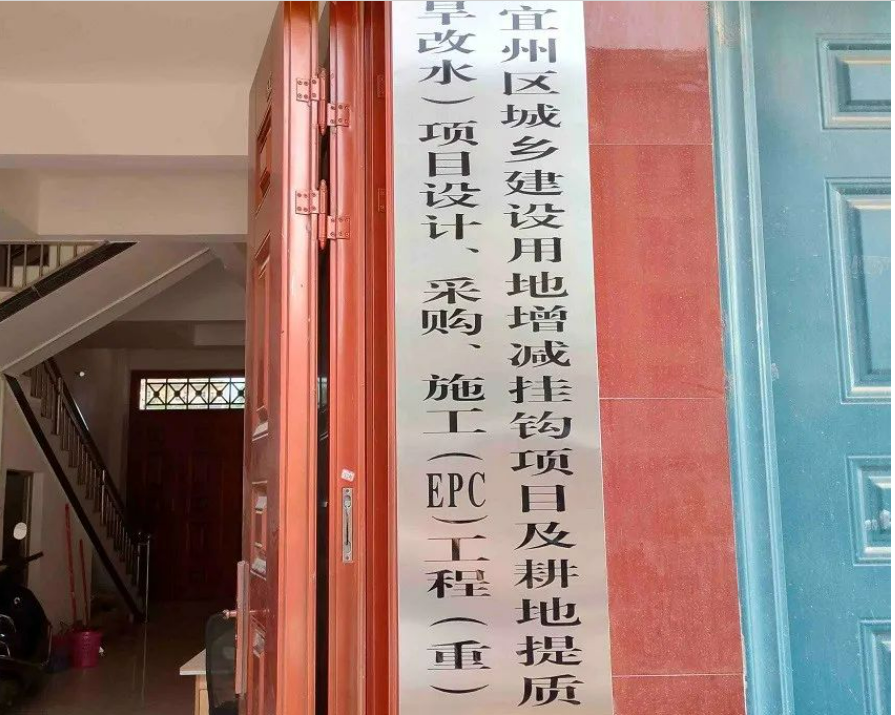 宜州区城乡建设用地增减挂钩项目及耕地提质
旱改水）项目设计、采购、施工（EPC）工程（重）